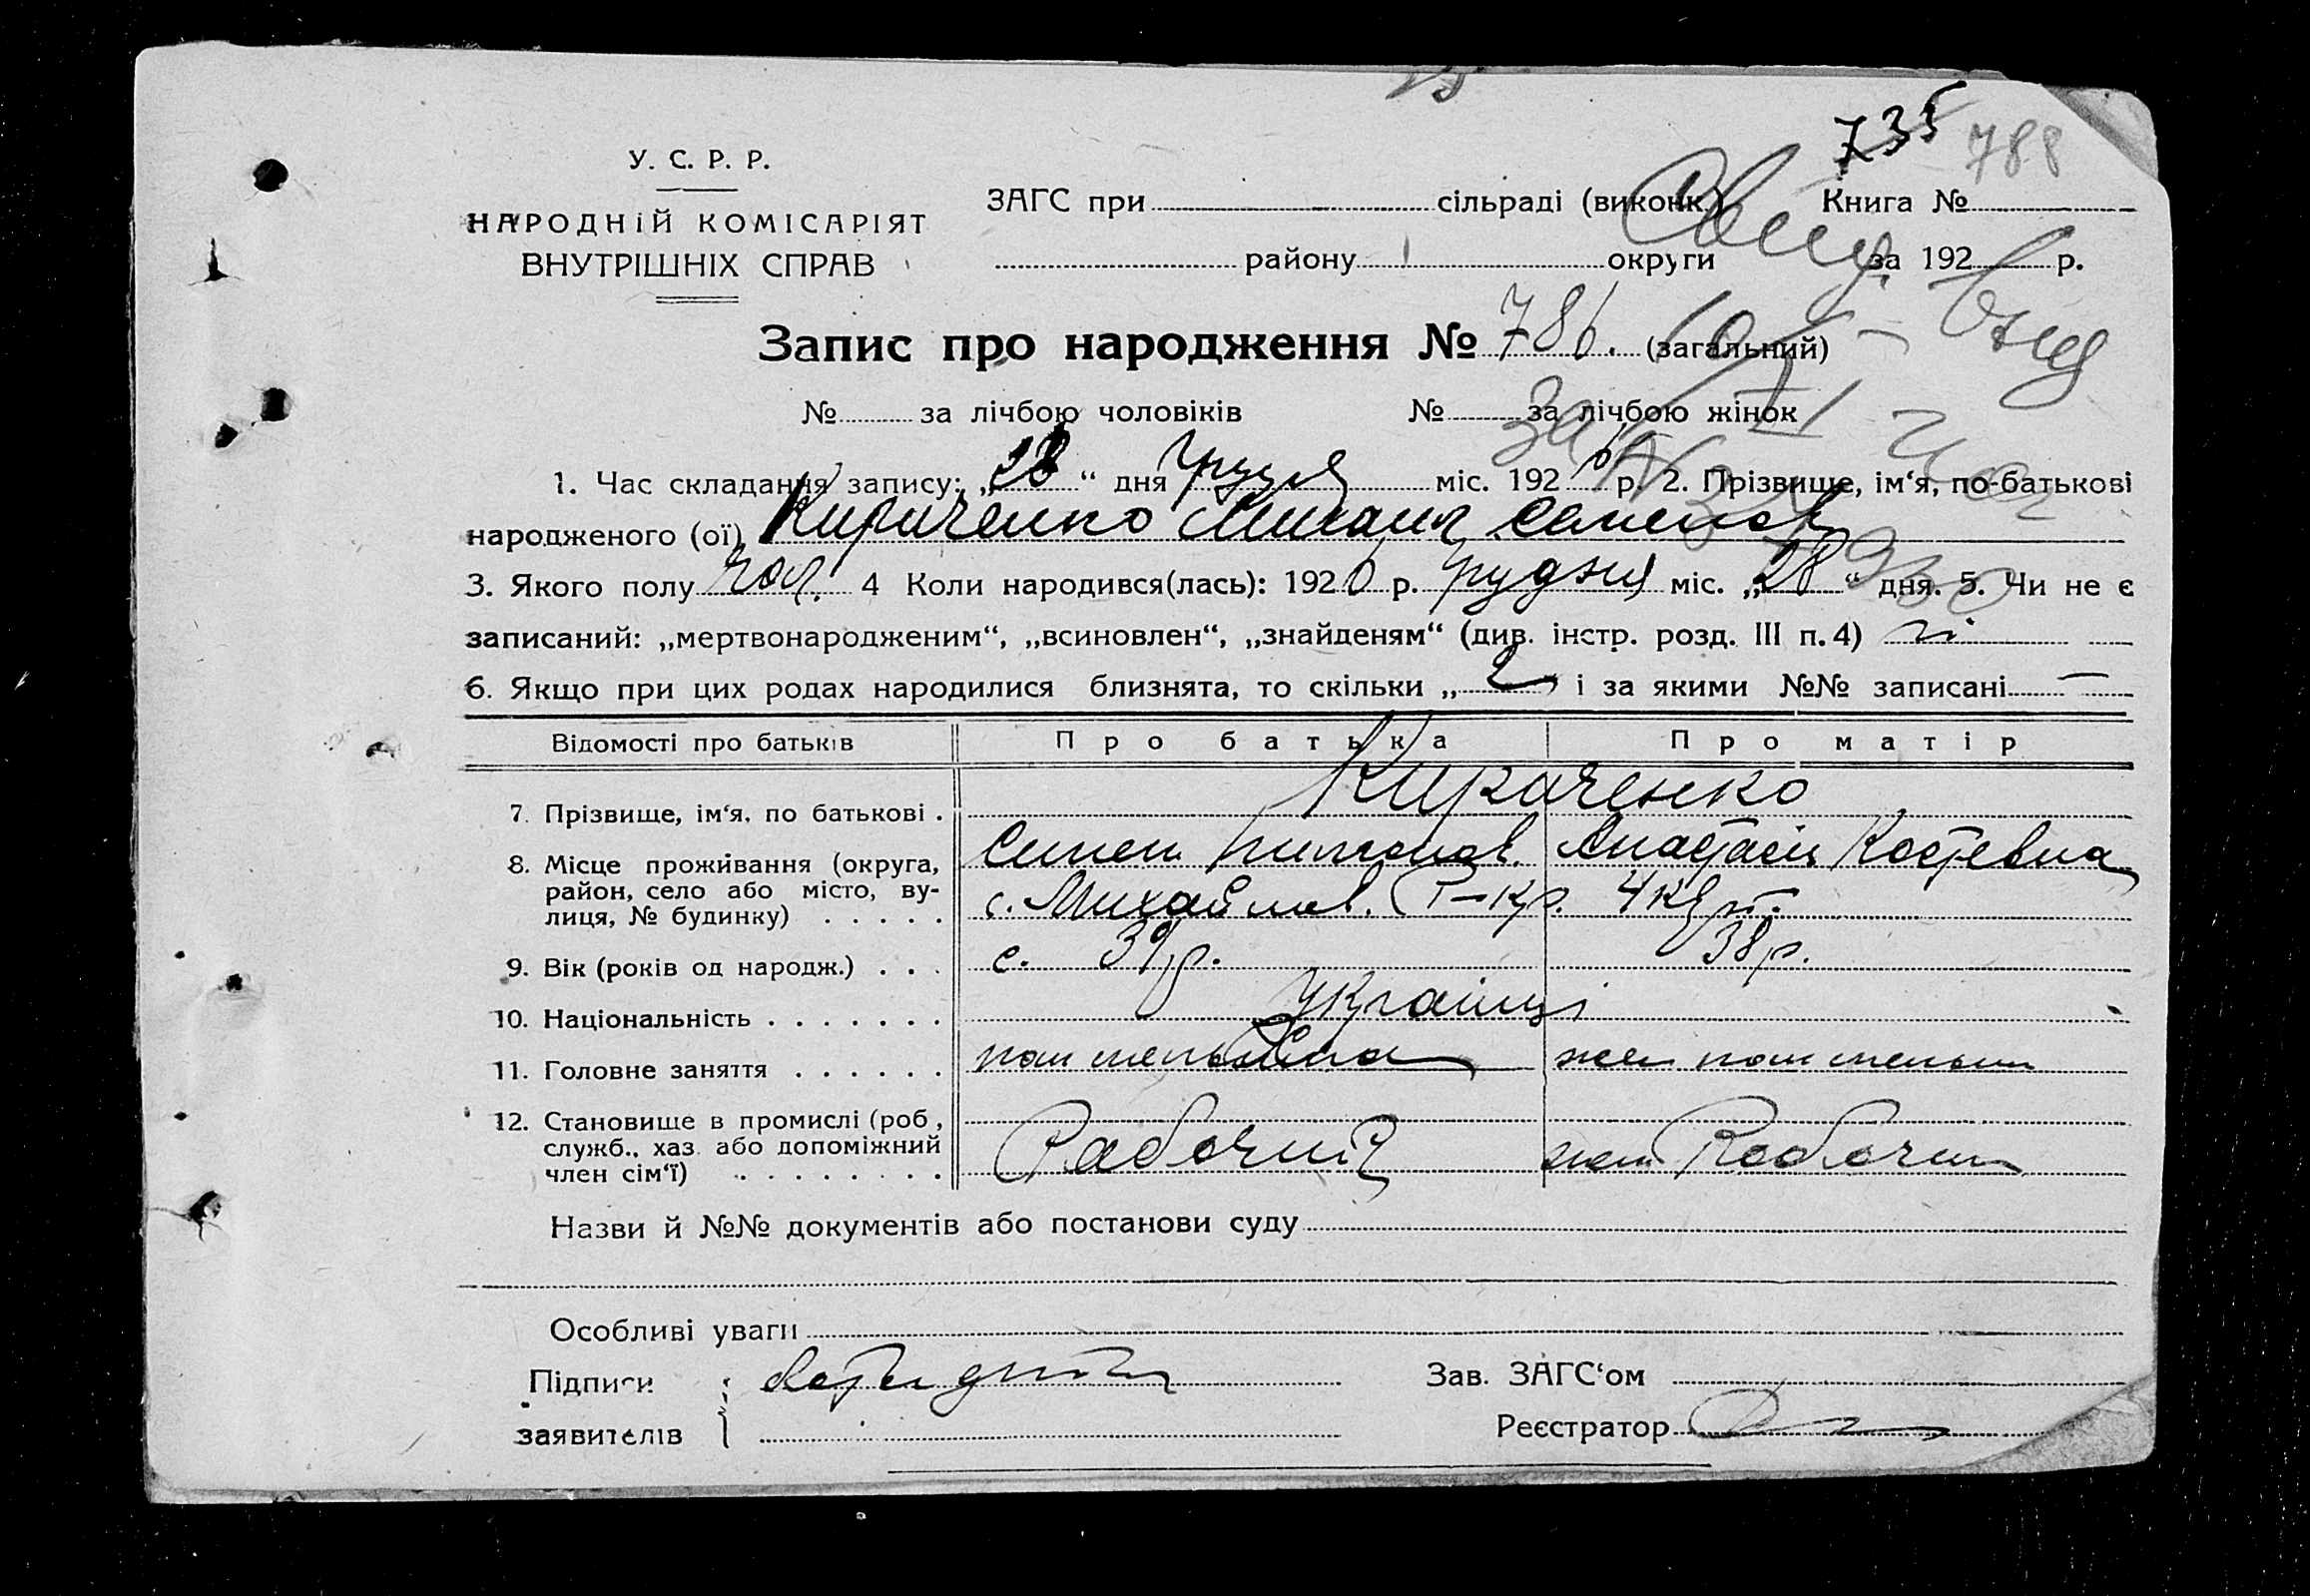 735 788
У. С. Р. Р.
НАРОДНІЙ КОМІСАРІЯТ
ВНУТРІШНІХ СПРАВ
ЗАГС при сільраді (виконк.) Книга №
району округи за 192 р.
Запис про народження № 786. (загальний)
№ за лічбою чоловіків № за лічбою жінок
1. Час складання запису: „28“ дня міс. 192 р. 2. Прізвище, ім‘я, по-батькові
народженого (ої) Кириченко Михаил Семенов
3. Якого полу чол. 4 Коли народився(лась): 1926 р. грудня міс. „28“ дня. 5. Чи не є
записаний: „мертвонародженим“, „всиновлен“, „знайденям“ (див. інстр. розд. III п. 4) ні
6. Якщо при цих родах народилися близнята, то скільки „ і за якими №№ записані —
Відомості про батьків Про батька Про матір
7. Прізвище, ім‘я, по батькові . Кириченко
8. Місце проживання (округа, Семен Анастасія Костевна
район, село або місто, ву-
лиця, № будинку) . . . . . с. Михайлов.
9. Вік (років од народж.) . . . 39 р. 38 р.
10. Національність . . . . . . . Українці
11. Головне заняття . . . . . .
12. Становище в промислі (роб.,
служб., хаз. або допоміжний
член сім‘ї) . . . . . . . . Рабочий жен Рабочии
Назви й №№ документів або постанови суду
Особливі уваги
Підписи Зав. ЗАГС‘ом
заявителів Реєстратор